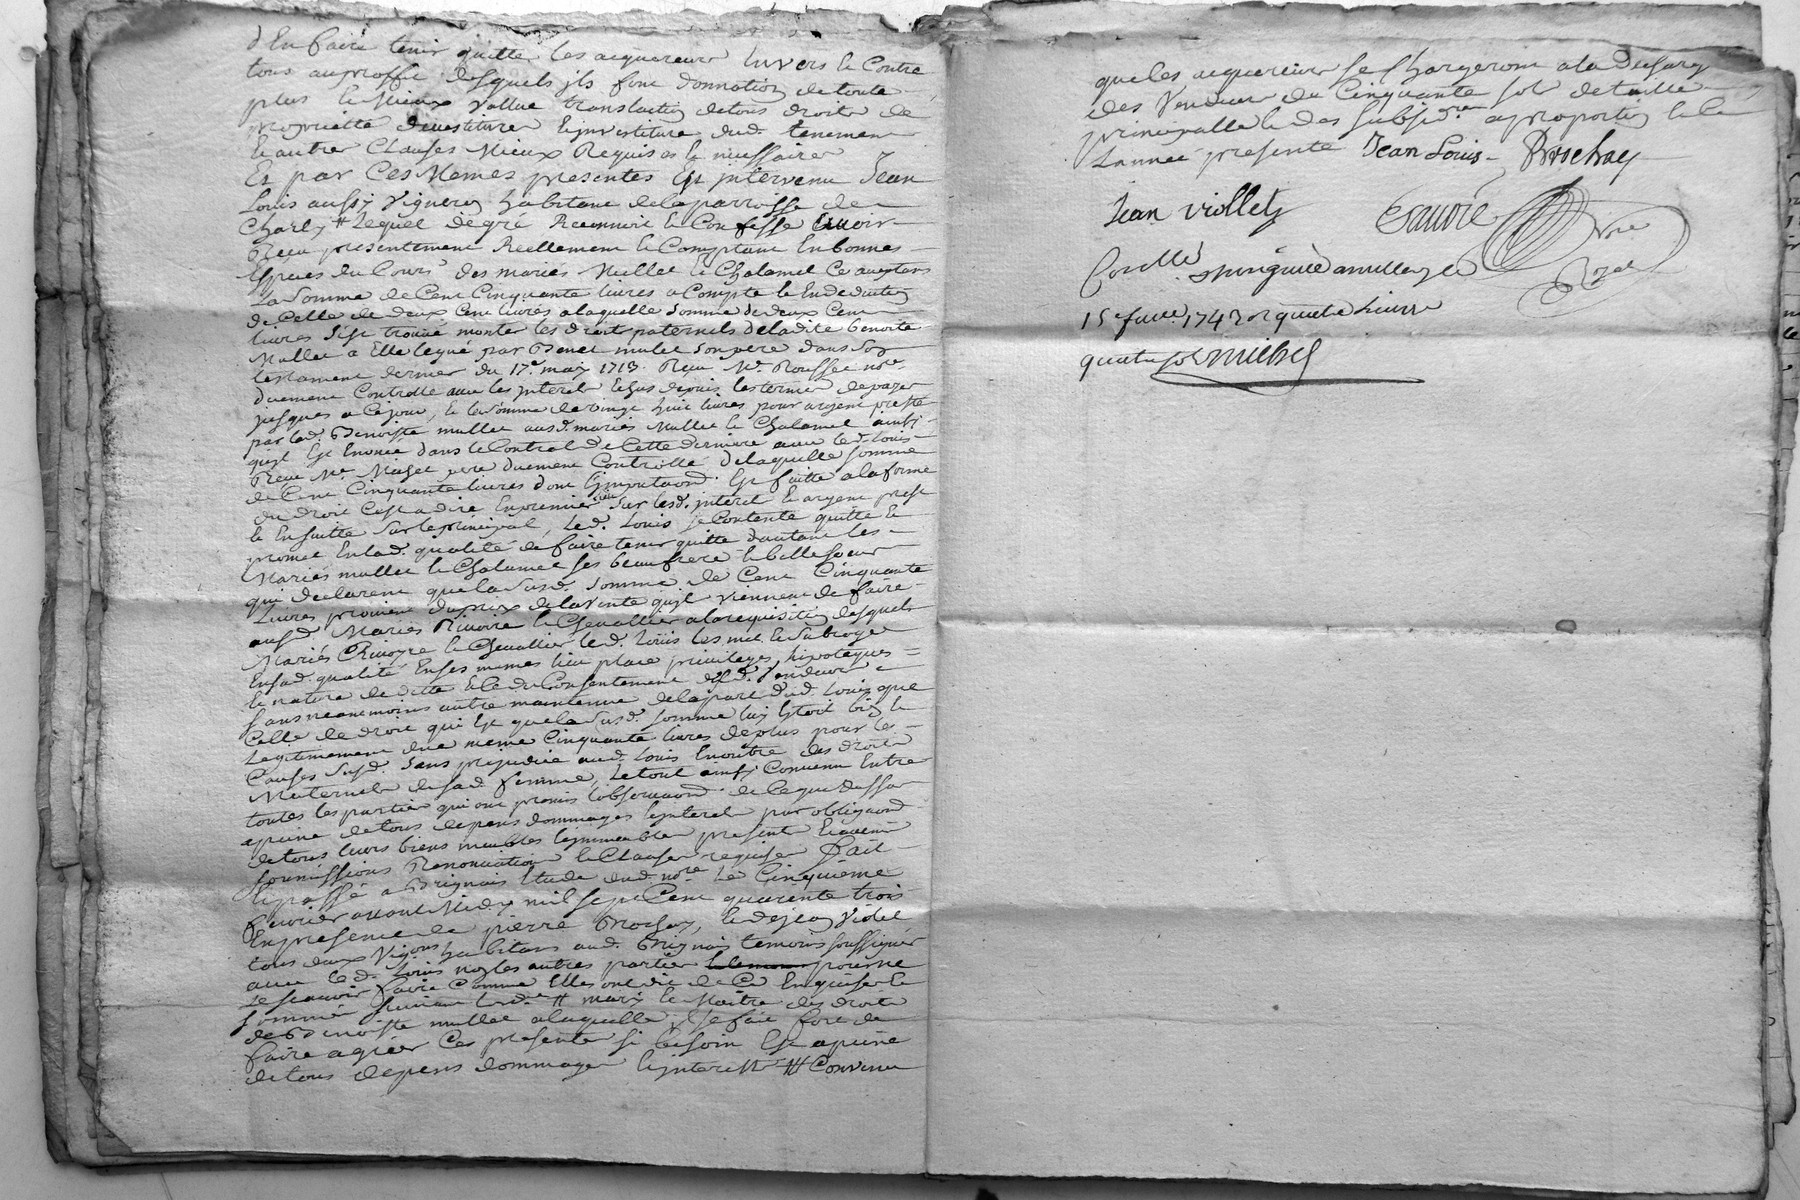 d'En faire tenir quitte les acquereurs Envers & Contre
tous au proffit desquels ils font donnation de toute
plus & Mieux vallue translation de tous droits de
proprietté devestiture & investiture dud. tenement
& autres Clauses Mieux Requises & neccessaires
Et par Ces Memes presentes Est intervenu Jean
Louis aussy Vigneron habitant de la parroisse de
Charly # Lequel de gré Reconnoit & Confesse avoir
Receu presentement Reellement & Comptant En bonnes
Especes du Cours des mariés Mullet & Chalamel Ce acceptans
La Somme de Cent Cinquante livres a Compte & En deduction
de Celle de deux Cent livres a laquelle Somme de deux Cent
livres s'est trouvé monter les droits paternels de ladite benoite
Mullet a Elle legué par Benet mulet son pere dans Son
testament dernier du 17e may 1713 Receu Me Roussel nore
duement Controllé avec les interets Echus depuis les termes de payer
jusques a Ce jour, & la Somme de vingt huit livres pour argent presté
par lad. Benoiste mullet aud. mariés Mullet & Chalamel ainsy
qu'il Est Enoncé dans le Contrat de Cette derniere avec led. Louis
Receu Me pere duement Controllé de laquelle somme
de Cent Cinquante livres dont l'imputaon. Est faitte a la forme
du droit C'est a dire En premier lieu Sur lesd. interets & argent presté
& Ensuitte Sur le principal, led. Louis se Contente quitte &
promet En lad. qualité de faire tenir quitte d'autant les
Mariés mullet & Chalamel ses beaufrere & belle soeur
qui declarent que la Susd. Somme de Cent Cinquante
Livres provient du prix de la Vente qu'il viennent de faire
ausd. Mariés Rivoire & Chevallier a la requisition desquels
Mariés Rivoyre & Chevallier led. Loüis les met & Subroge
En sad. qualité En ses memes lieu place privileges, hipoteques
& nature de ditte & Ce du Consentement desd. Vendeurs
Sans neanmoins autre maintenue de la part dud. Louis que
Celle de droit qui Est que la Susd. Somme luy Etoit bien &
Legitimement due meme Cinquante livres de plus pour les
Causes Susd. Sans prejudice aud. Louis Encontre des droits
Maternels de sad. femme, Le tout ainsy Convenu Entre
toutes les parties qui ont promis l'observaon. de Ce que dessus
a peine de tous depens dommages & interets par obligaon.
de tous leurs biens meubles & immeubles presents & avenir
Soumissions Renonciation & Clauses requises fait
& passé a Brignais Etude dud. nore Le Cinquieme
fevrier avant Midy mil sept Cent quarante trois
En presence de pierre Brochay, & de jean Violet
tous deux Vigons habitans aud. Brignais temoins soussignés
avec led. Louis non les autres parties pour ne
le Scavoir faire Comme Elles ont dit de Ce Enquises &
sommé suivant Lordce # mary & Maitre des droits
de Benoiste mullet a laquelle il se fait fort de
faire agreer Ces presentes si besoin Est a peine
de tous depens dommages & interets ## Convenu
que les acquereurs se Chargeront a la decharge
des Vendeurs de Cinquante sols de taille
principalle & des Subsid.res a proportion & Ce
L'année presente Jean Louis Brochay
Jean viollet Rivoire
Conllé
15e fuve. 1743 R quatre livres
quatre sols Michel